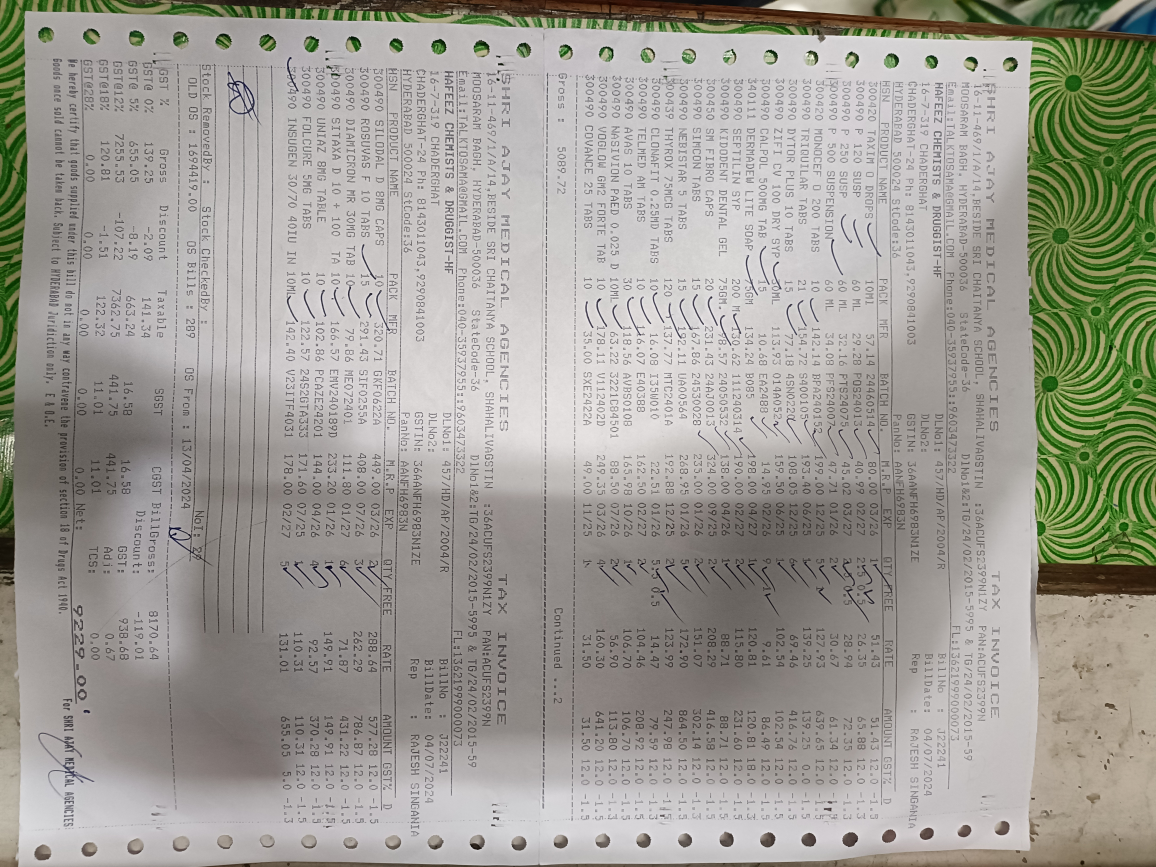 SHRI AJAY MEDICAL AGENCIES TAX INVOICE
16-11-469/1/A/14,BESIDE SRI CHAITANYA SCHOOL, SHAHALIVAGSTIN :36ACUFS2399N1ZY PAN:ACUFS2399N
MOOSARAM BAGH, HYDERABAD-500036 StateCode-36 DlNo1&2:TG/24/02/2015-5995 & TG/24/02/2015-59
Email:TALKTOSAMA@GMAIL.COM Phone:040-35937955::9603473322 FL:13621999000073
HAFEEZ CHEMISTS & DRUGGIST-HF DLNo1: 457/HD/AP/2004/R BillNo : J22241
16-7-319 CHADERGHAT DLNo2: BillDate: 04/07/2024
CHADERGHAT-24 Ph: 8143011043,9290841003 GSTIN: 36AANFH6983N1ZE Rep : RAJESH SINGANIA
HYDERABAD 500024 StCode:36 PanNo: AANFH6983N
HSN PRODUCT NAME PACK MFR BATCH NO. M.R.P EXP QTY FREE RATE AMOUNT GST% D
300420 TAXIM O DROPS 10Ml 57.14 24460514 80.00 03/26 1 51.43 51.43 12.0 -1.5
300490 P 120 SUSP 60 ML 29.28 PDS24013 40.99 02/27 2.5 0.5 26.35 65.88 12.0 -1.3
300490 P 250 SUSP 60 ML 32.16 FTS24075 45.02 03/27 2.5 0.5 28.94 72.35 12.0 -1.3
300490 P 500 SUSPENSION 60 ML 34.08 PFS24007 47.71 01/27 2 30.67 61.34 12.0
300420 MONOCEF O 200 TABS 10 142.14 199.00 12/25 5 127.93 639.65 12.0 -1.5
300490 TRIQUILAR TABS 21 154.72 193.40 06/25 1 139.25 139.25 0.0 -1.5
300490 DYTOR PLUS 10 TABS 15 77.18 108.05 12/25 6 69.46 416.76 12.0 -1.5
300490 ZIFI 100 DRY SYP 30ML 113.93 159.50 06/25 1 102.54 102.54 12.0 -1.5
300490 CALPOL 500MG TAB 15 10.68 EA2488 14.95 9 9.61 86.49 12.0 -1.5
340111 DERMADEW LITE SOAP 75GM 134.24 B085 198.00 04/27 1 120.81 120.81 18.0 -1.5
300490 SEPTILIN SYP 200 M 111240314 190.00 2 115.80 231.60 12.0 -1.5
300490 KIDODENT DENTAL GEL 75GM 98.57 24050532 138.00 04/26 1 88.71 88.71 12.0 -1.5
300450 SM FIBRO CAPS 20 231.43 24AJ0013 324.00 09/25 2 208.29 416.58 12.0 -1.5
300490 STMCON TABS 15 167.86 24330028 235.00 01/26 2 151.07 302.14 12.0 -1.5
300490 NEBISTAR 5 TABS 15 192.11 UA00564 268.95 01/26 5 172.90 864.50 12.0 -1.5
300439 THYROX 75MCG TABS 120 137.77 MTC2401A 192.88 12/25 2 123.99 247.98 12.0 -1.5
300490 CLONAFIT 0.25MD TABS 10 16.08 I35W010 22.51 01/26 5.5 0.5 14.47 79.59 12.0 -1.3
300490 TELMED AM TABS 10 116.07 E40388 162.50 01/26 2 104.46 208.92 12.0 -1.5
300490 AVAS 10 TABS 30 118.56 AVBS0108 165.98 10/26 1 106.70 106.70 12.0 -1.5
300490 NASIVION PAED 0.025 D 10ML 63.22 3221B84501 88.50 07/26 2 56.90 113.80 12.0 -1.5
300490 VOGLOW GM2 FORTE TAB 10 178.11 V112402D 249.35 03/26 4 160.30 641.20 12.0 -1.5
300490 COVANCE 25 TABS 10 35.00 SXE2422A 49.00 11/25 1 31.50 31.50 12.0 -1.5
Gross : 5089.72 Continued ...2
SHRI AJAY MEDICAL AGENCIES TAX INVOICE
16-11-469/1/A/14,BESIDE SRI CHAITANYA SCHOOL, SHAHALIVAGSTIN :36ACUFS2399N1ZY PAN:ACUFS2399N
MOOSARAM BAGH, HYDERABAD-500036 StateCode-36 DlNo1&2:TG/24/02/2015-5995 & TG/24/02/2015-59
Email:TALKTOSAMA@GMAIL.COM Phone:040-35937955::9603473322 FL:13621999000073
HAFEEZ CHEMISTS & DRUGGIST-HF DLNo1: 457/HD/AP/2004/R BillNo : J22241
16-7-319 CHADERGHAT DLNo2: BillDate: 04/07/2024
CHADERGHAT-24 Ph: 8143011043,9290841003 GSTIN: 36AANFH6983N1ZE Rep : RAJESH SINGANIA
HYDERABAD 500024 StCode:36 PanNo: AANFH6983N
HSN PRODUCT NAME PACK MFR BATCH NO. M.R.P EXP QTY FREE RATE AMOUNT GST% D
300490 SILODAL D 8MG CAPS 10 320.71 GKF0622A 449.00 03/26 2 288.64 577.28 12.0 -1.5
300490 ROSUVAS F 10 TABS 15 291.43 SIF0255A 408.00 07/26 3 262.29 786.87 12.0 -1.5
300490 DIAMICRON MR 30MG TAB 10 79.86 ME072401 111.80 01/27 6 71.87 431.22 12.0 -1.5
300490 SITAXA D 10 + 100 TA 10 166.57 EMV240189D 233.20 01/26 1 149.91 149.91 12.0 -1.5
300490 UNIAZ 8MG TABLET 10 102.86 PCAZE24201 144.00 04/26 4 92.57 370.28 12.0 -1.5
300490 FOLICURE 5MG TABS 10 122.57 24SBTA333 171.60 07/25 1 110.31 110.31 12.0 -1.5
300490 INSUGEN 30/70 40IU IN 10ML 142.40 V23ITF4031 178.00 02/27 5 131.01 655.05 5.0 -1.3
Stock RemovedBy : Stock CheckedBy : NoI: 29
OLD OS : 169419.00 OS Bills : 289 OS From : 13/04/2024
GST % Gross Discount Taxable SGST CGST BillGross: 8170.64
GST@ 0% 139.25 -2.09 141.34 Discount: -119.01
GST@ 5% 655.05 -8.19 663.24 16.58 16.58 GST: 938.68
GST@12% 7255.53 -107.22 7362.75 441.75 441.75 Adj: 0.67
GST@18% 120.81 -1.51 122.32 11.01 11.01 TCS: 0.00
GST@28% 0.00 0.00 0.00 0.00 0.00 Net: 9229.00
We hereby certify that goods supplied under this bill do not in any way contravene the provision of section 18 of Drugs Act 1940.
Goods once sold cannot be taken back. Subject to HYDERABAD Juridiction only. E & O.E. For SHRI AJAY MEDICAL AGENCIES